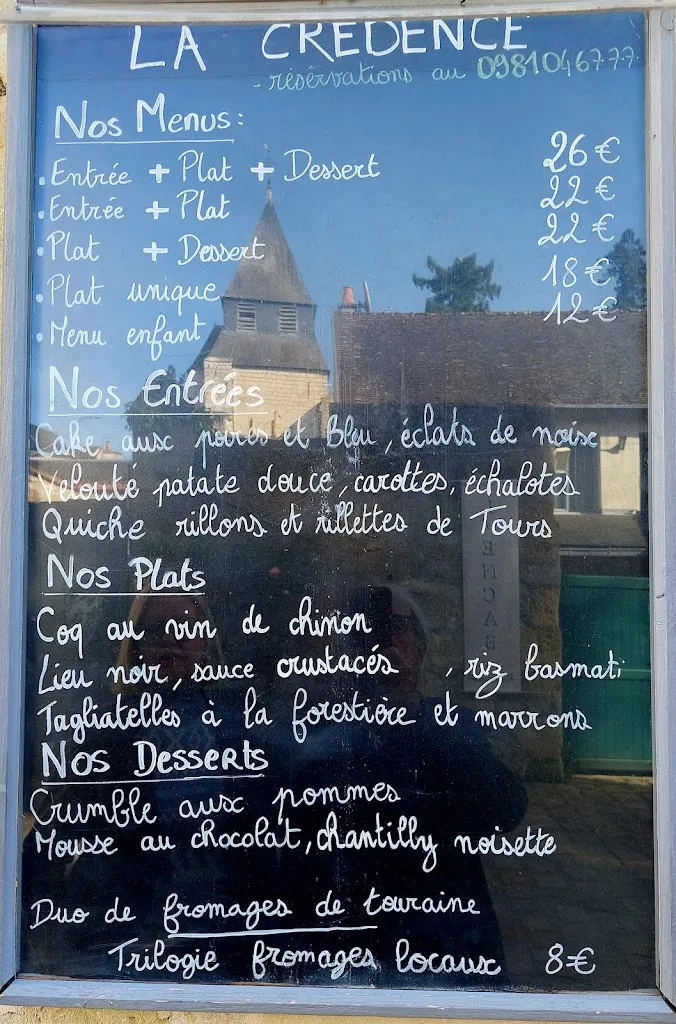 LA CREDENCE
- résérvations au 0981046777
Nos Menus:
• Entrée + Plat + Dessert 26€
• Entrée + Plat 22€
• Plat + Dessert 22€
• Plat unique 18€
• Menu enfant 12€
Nos Entrées
Cake aux poires et Bleu, éclats de noix
Velouté patate douce, carottes, échalotes
Quiche rillons et rillettes de Tours
Nos Plats
Coq au vin de chinon
Lieu noir, sauce crustacés , riz basmati
Tagliatelles à la forestière et marrons
Nos Desserts
Crumble aux pommes
Mousse au chocolat, chantilly noisette
Duo de fromages de touraine
Trilogie fromages locaux 8€